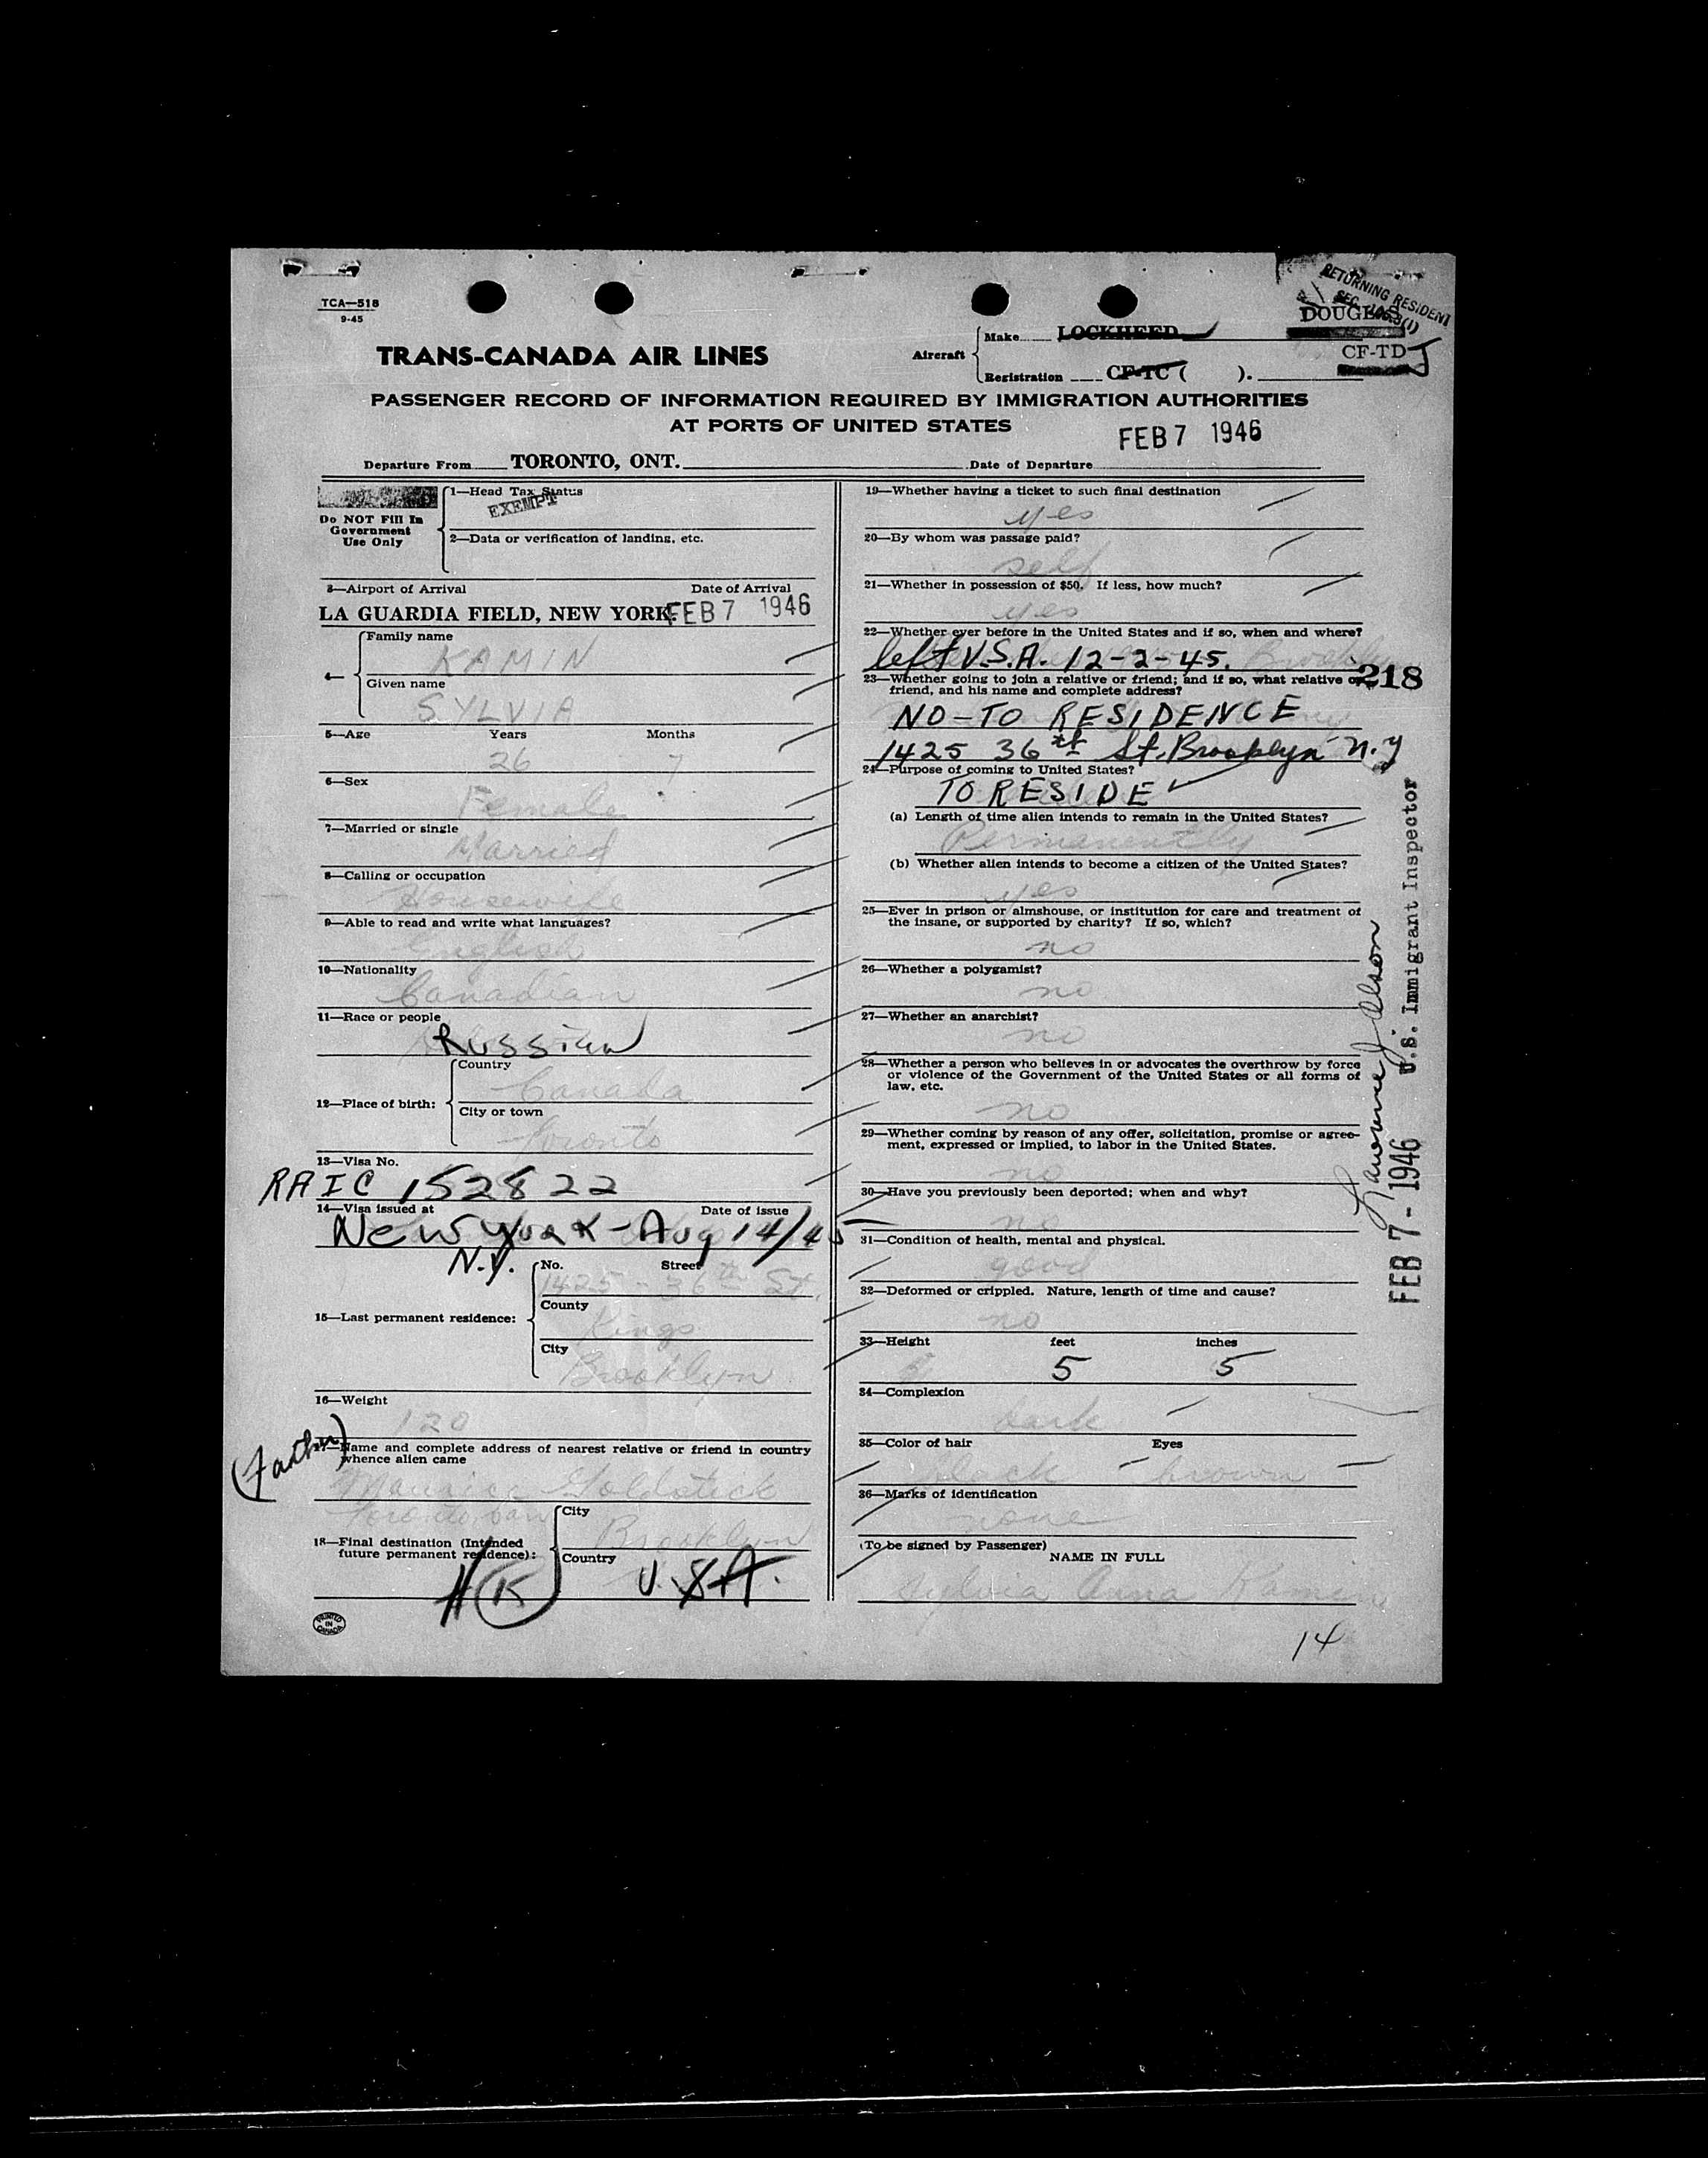 TCA—518
9-45
RETURNING RESIDENT
SEC.
DOUGLAS
Make LOCKHEED
TRANS-CANADA AIR LINES
Aircraft
CF-TD J
Registration CF-TC ( ).
PASSENGER RECORD OF INFORMATION REQUIRED BY IMMIGRATION AUTHORITIES
AT PORTS OF UNITED STATES
FEB 7 1946
Departure From TORONTO, ONT. Date of Departure
Do NOT Fill In
Government
Use Only
1—Head Tax Status
EXEMPT
2—Data or verification of landing, etc.
3—Airport of Arrival Date of Arrival
LA GUARDIA FIELD, NEW YORK. FEB 7 1946
4—
Family name
KAMIN
Given name
SYLVIA
5—Age Years Months
26 7
6—Sex
Female
7—Married or single
Married
8—Calling or occupation
Housewife
9—Able to read and write what languages?
English
10—Nationality
Canadian
11—Race or people
Russian
12—Place of birth:
Country
Canada
City or town
Toronto
13—Visa No.
RAIC 152822
14—Visa issued at Date of issue
New York - Aug 14/45
N.Y.
15—Last permanent residence:
No. Street
1425 - 36th St.
County
Kings
City
Brooklyn
16—Weight
120
(Father)
17—Name and complete address of nearest relative or friend in country
whence alien came
Maurice Goldstick
18—Final destination (Intended
future permanent residence):
City
Brooklyn
Country
U.S.A.
PRINTED
IN
CANADA
19—Whether having a ticket to such final destination
yes
20—By whom was passage paid?
self
21—Whether in possession of $50. If less, how much?
yes
22—Whether ever before in the United States and if so, when and where?
left U.S.A. 12-2-45.
218
23—Whether going to join a relative or friend; and if so, what relative or
friend, and his name and complete address?
NO - TO RESIDENCE
1425 36th St. Brooklyn N.Y
24—Purpose of coming to United States?
TO RESIDE
(a) Length of time alien intends to remain in the United States?
Permanently
(b) Whether alien intends to become a citizen of the United States?
yes
25—Ever in prison or almshouse, or institution for care and treatment of
the insane, or supported by charity? If so, which?
no
26—Whether a polygamist?
no
27—Whether an anarchist?
no
28—Whether a person who believes in or advocates the overthrow by force
or violence of the Government of the United States or all forms of
law, etc.
no
29—Whether coming by reason of any offer, solicitation, promise or agree-
ment, expressed or implied, to labor in the United States.
no
30—Have you previously been deported; when and why?
no
31—Condition of health, mental and physical.
good
32—Deformed or crippled. Nature, length of time and cause?
no
33—Height feet inches
5 5
34—Complexion
dark
35—Color of hair Eyes
black - brown
36—Marks of identification
none
(To be signed by Passenger)
NAME IN FULL
Sylvia Anna Kamin
14
FEB 7 - 1946 U.S. Immigrant Inspector